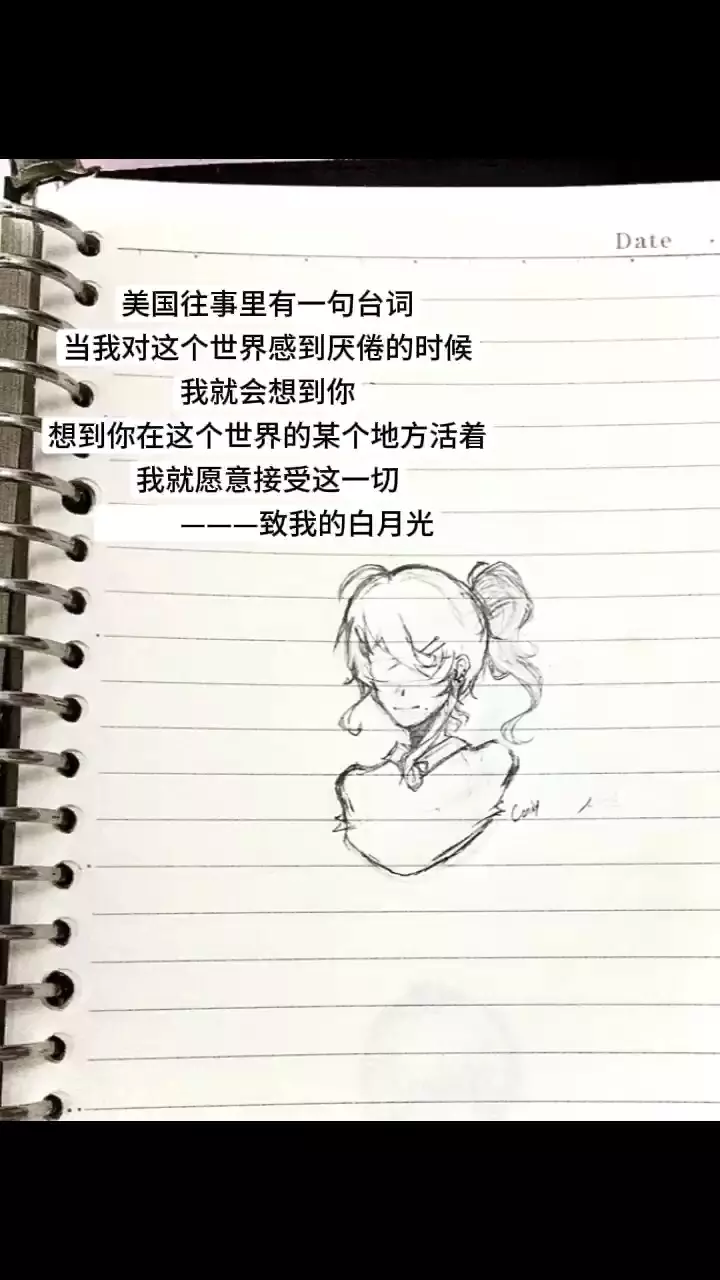 Date
美国往事里有一句台词
当我对这个世界感到厌倦的时候
我就会想到你
想到你在这个世界的某个地方活着
我就愿意接受这一切
———致我的白月光